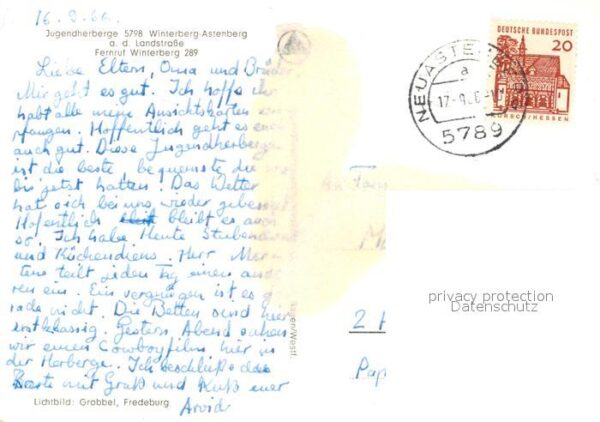 16.9.66
Jugendherberge 5798 Winterberg-Astenberg
a. d. Landstraße
Fernruf Winterberg 289
Liebe Eltern, Oma und Brüder
Mir geht es gut. Ich hoffe ihr
habt alle meine Ansichtskarten em
pfangen. Hoffentlich geht es euch
auch gut. Diese Jugendherberge
ist die beste, bequemste die wir
bis jetzt hatten. Das Wetter
hat sich bei uns wieder gebessert
Hofentlich bleibt es auch
so. Ich habe Heute Stuben
und Küchendiens. Herr Mer
tens teilt jeden Tag einen ande
ren ein. Ein vergnügen ist es g
rade nicht. Die Betten sind hier
erstklassig. Gestern Abend sahen
wir einen Cowboyfilm hier in
der Herberge. Ich beschließe das
Beste mit Gruß und Kuß euer
Arvid
Lichtbild: Grobbel, Fredeburg
DEUTSCHE BUNDESPOST
20
LORSCH/HESSEN
NEUASTEN
a
17.-9.66
5789
An Fam
2
Pap
privacy protection
Datenschutz